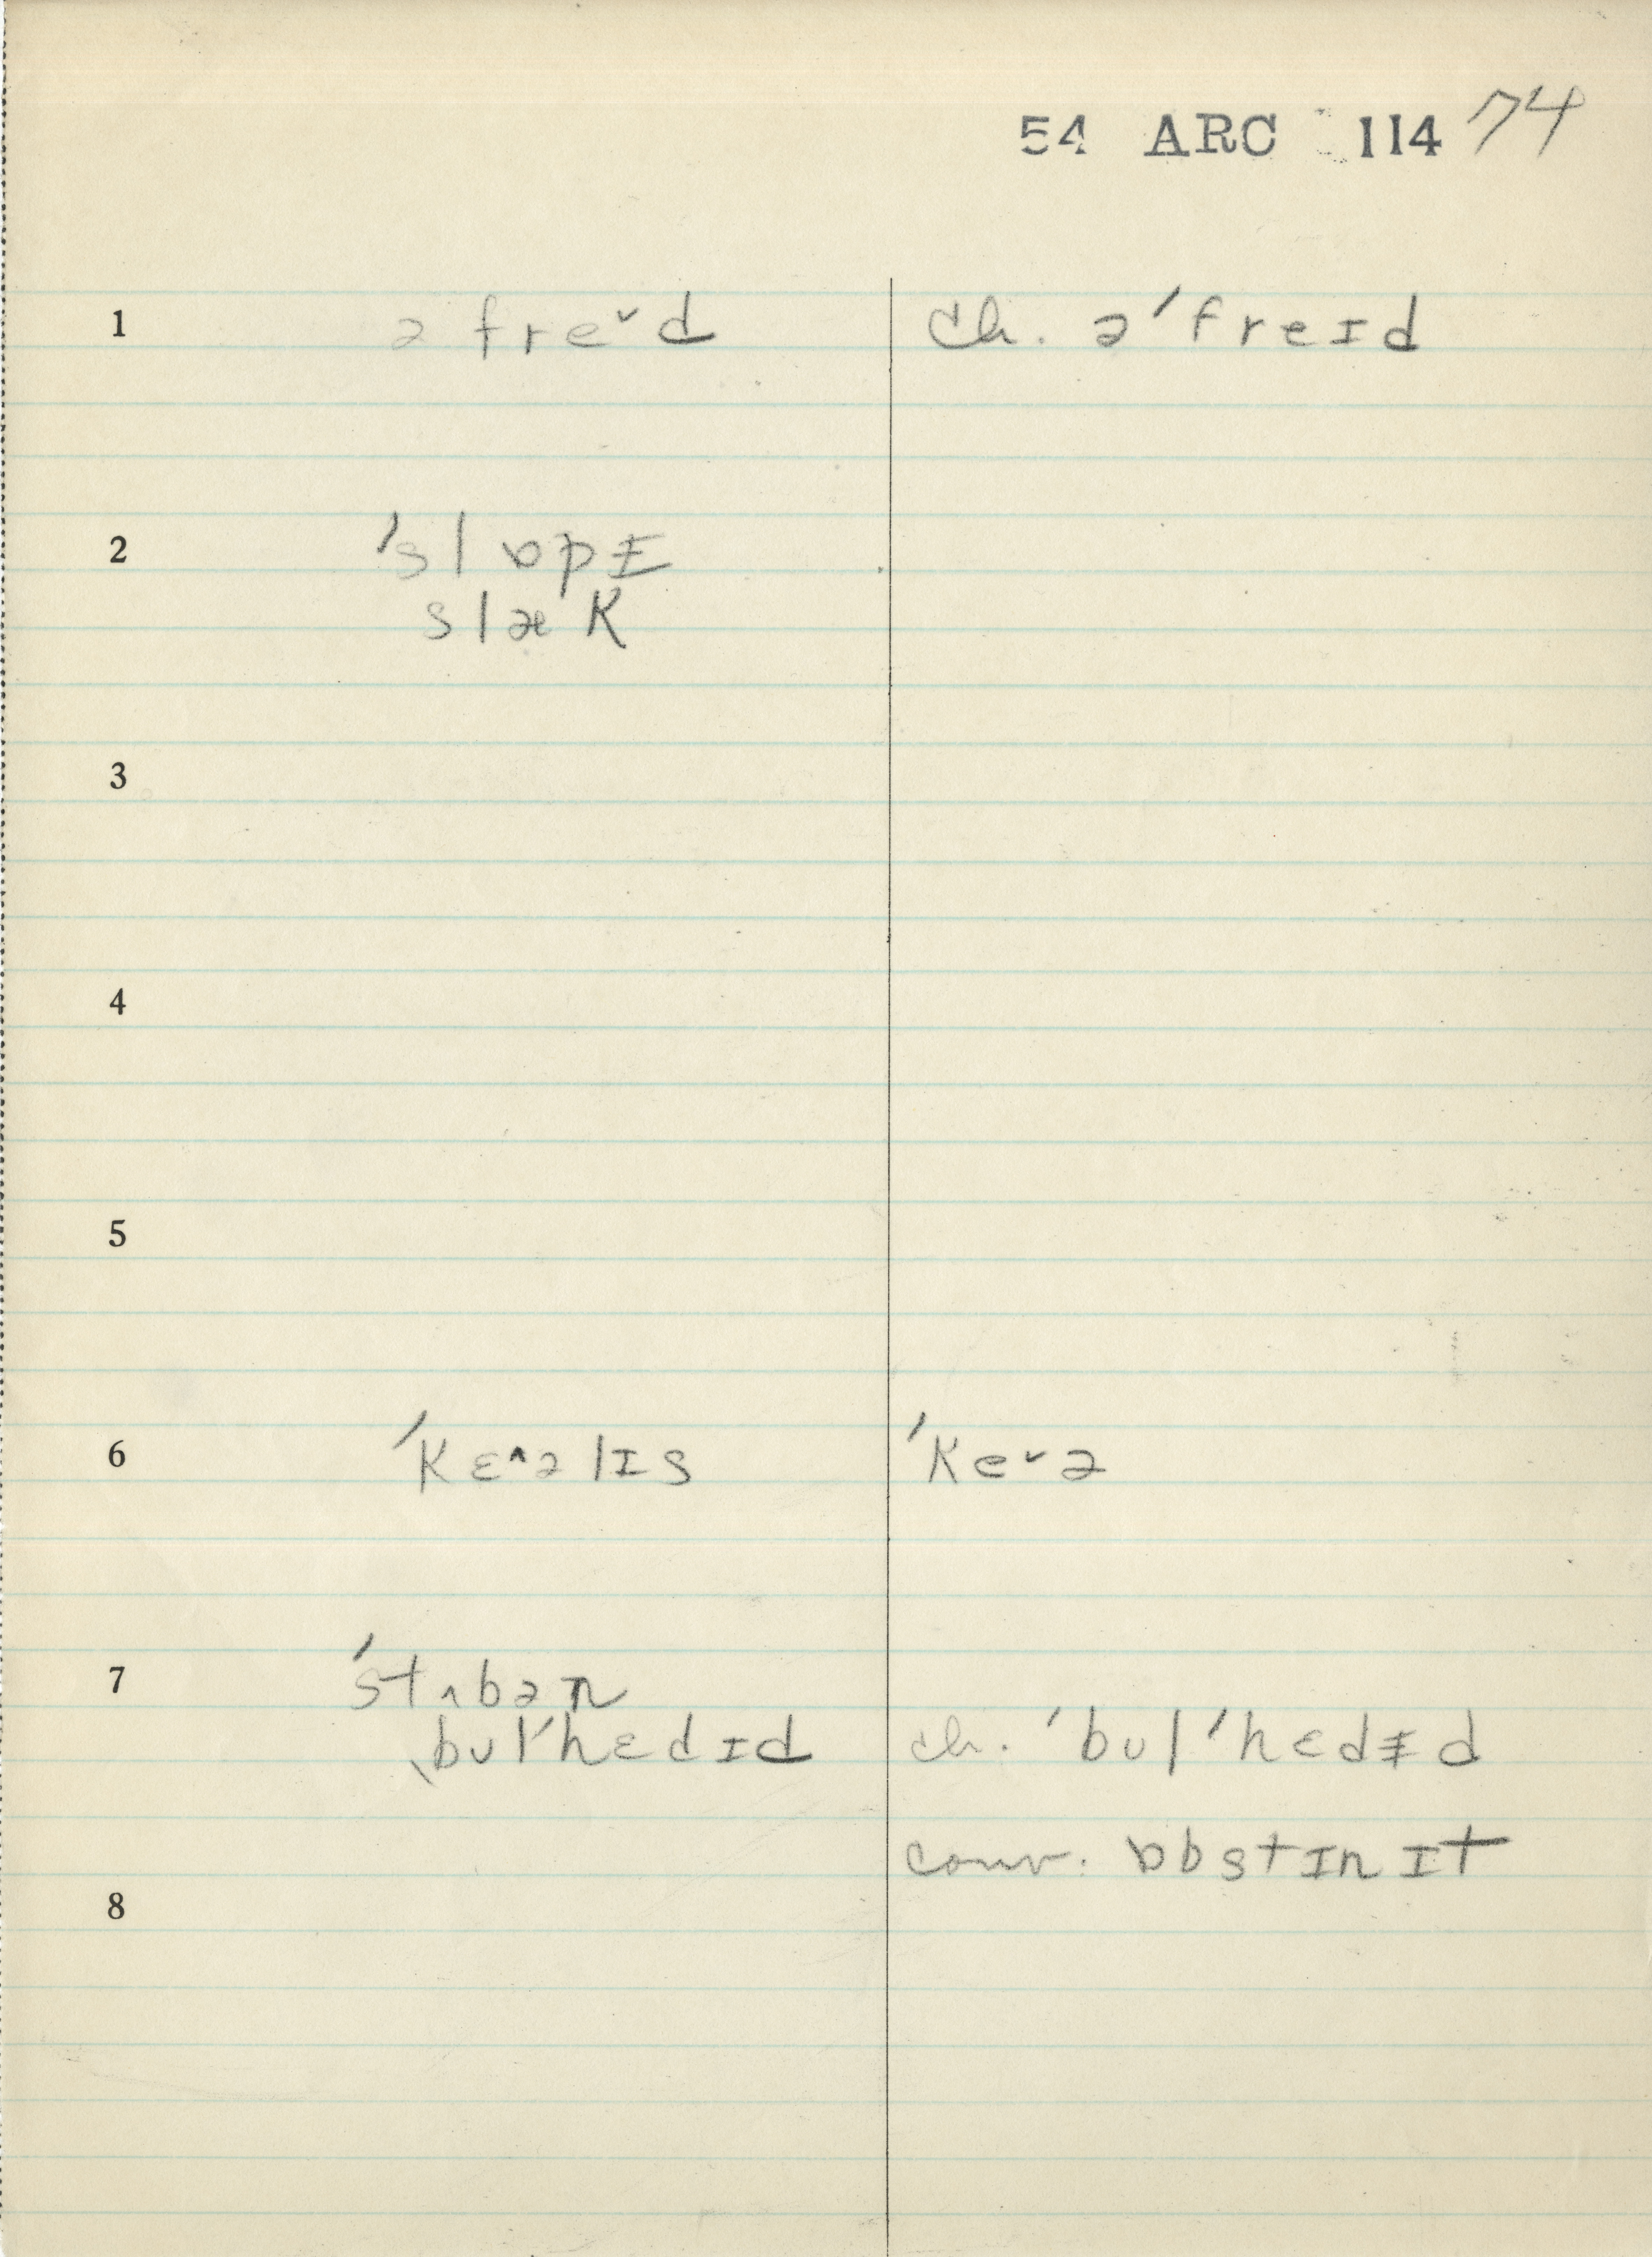 54 ARC 114 74
1 ə freˇd ch. ə'freɪd
2 'slɒpᵻ
slæK
3
4
5
6 'Kɛ^əlɪs 'Keˇə
7 'stʌbən
ˌbʊl'hɛdɪd ch. 'bʊl'hɛdᵻd
conv. ɒbstɪnɪt
8